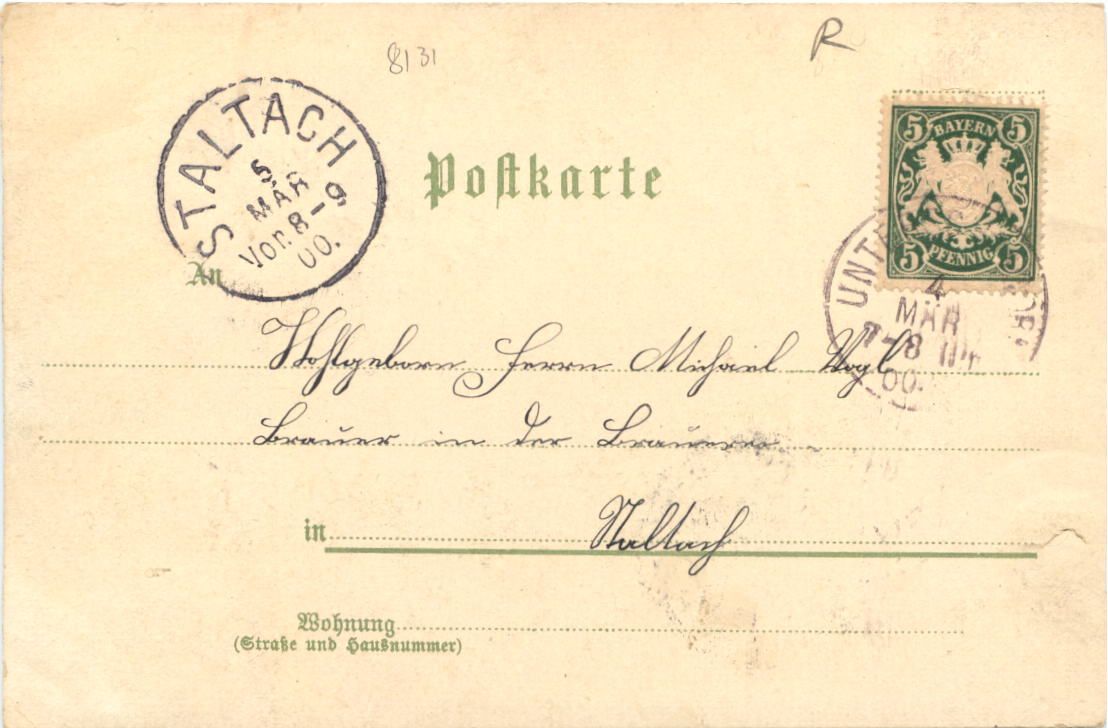 8131
R
STALTACH
5
MÄR
Vor. 8-9
00.
Postkarte
5 BAYERN 5
5 PFENNIG 5
UNT
4
MÄR
7-8
00.
An
Wohlgeborn Herrn Michael Vogl
Brauer in der Brauerei
in Staltach
Wohnung
(Straße und Hausnummer)